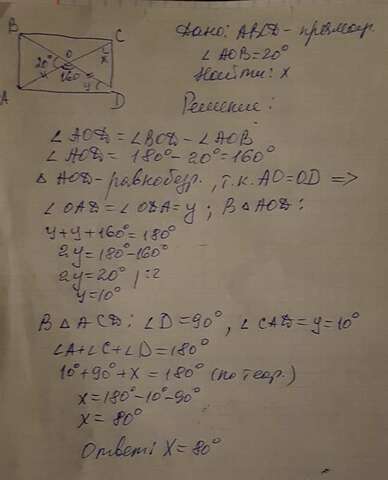 B
C
O
20°
160°
x
y
y
A
D
Дано: ABCD - прямоуг.
∠AOB=20°
Найти: x
Решение:
∠AOD = ∠BOD - ∠AOB
∠AOD = 180° - 20° = 160°
△ AOD - равнобедр., т.к. AO=OD =>
∠OAD = ∠ODA = y; В △ AOD:
y+y+160°=180°
2y=180°-160°
2y=20° |:2
y=10°
В △ ACD: ∠D=90°, ∠CAD=y=10°
∠A+∠C+∠D=180°
10°+90°+x = 180° (по теор.)
x=180°-10°-90°
x= 80°
Ответ: x = 80°